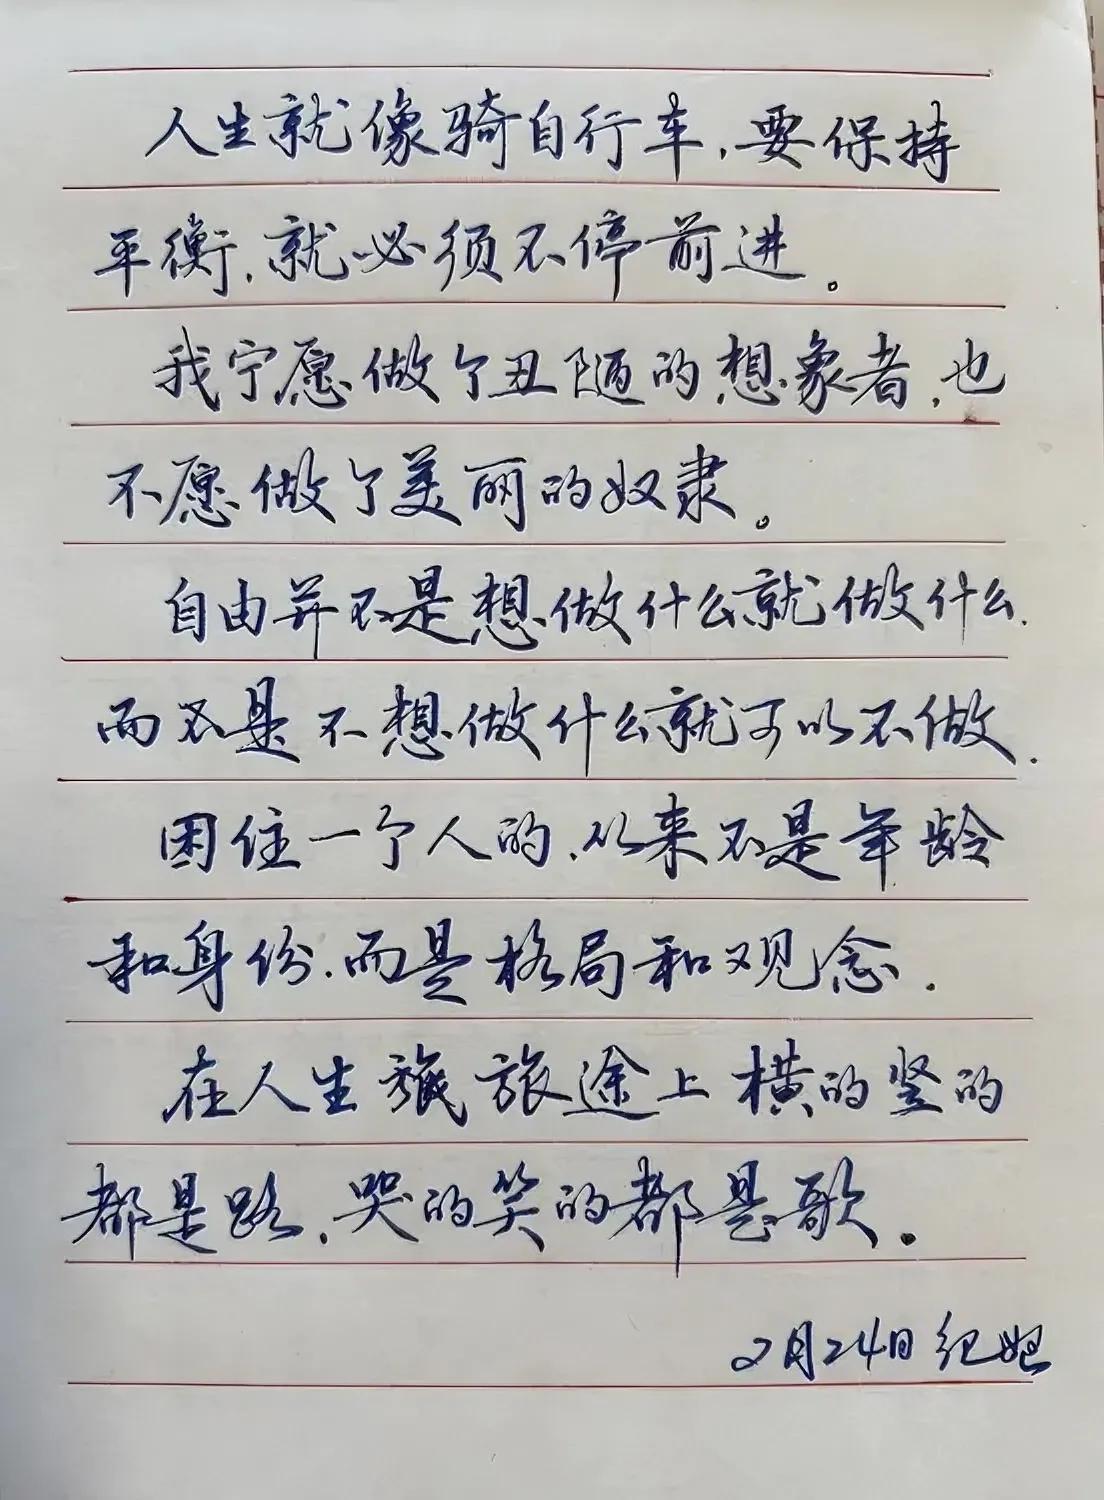 人生就像骑自行车,要保持
平衡,就必须不停前进。
我宁愿做个丑陋的想象者,也
不愿做个美丽的奴隶。
自由并不是想做什么就做什么.
而是不想做什么就可以不做.
困住一个人的,从来不是年龄
和身份.而是格局和观念.
在人生 旅途上横的竖的
都是路,哭的笑的都是歌。
2月24日 纪